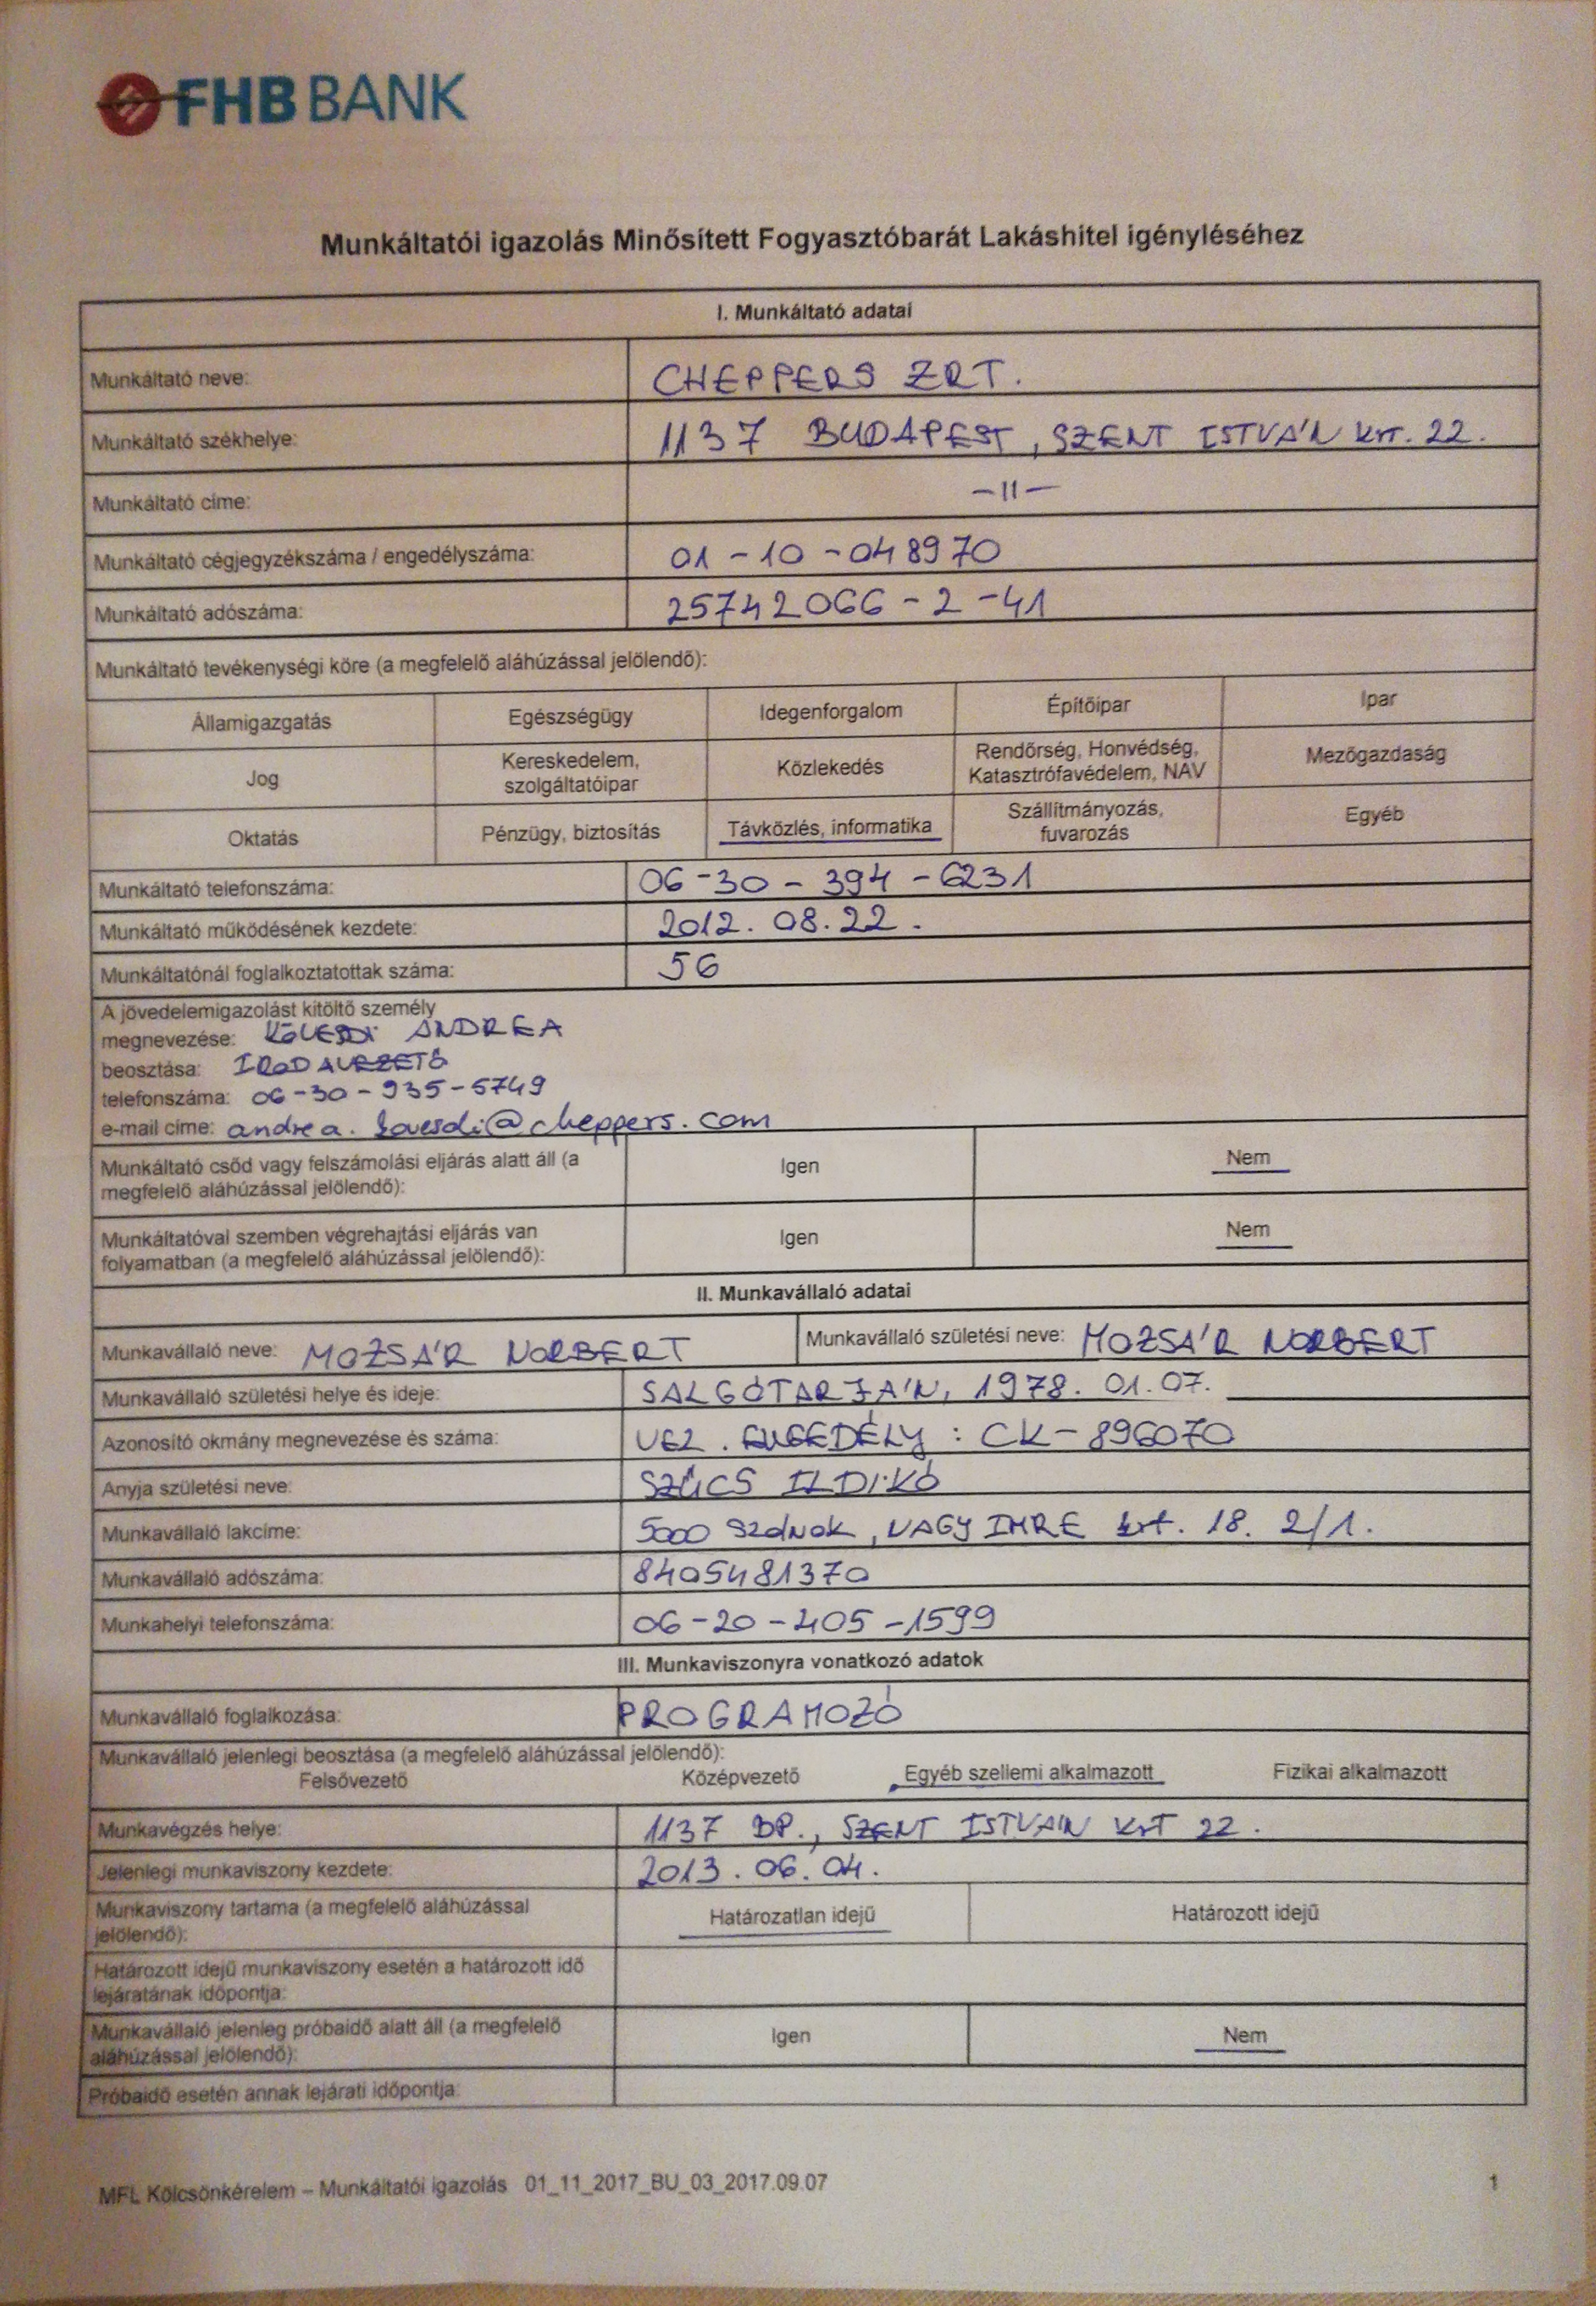 FHB BANK
Munkáltatói igazolás Minősített Fogyasztóbarát Lakáshitel igényléséhez
I. Munkáltató adatai
Munkáltató neve: CHEPPERS ZRT.
Munkáltató székhelye: 1137 BUDAPEST, SZENT ISTVÁN krt. 22.
Munkáltató címe: -11-
Munkáltató cégjegyzékszáma / engedélyszáma: 01-10-048970
Munkáltató adószáma: 25742066-2-41
Munkáltató tevékenységi köre (a megfelelő aláhúzással jelölendő):
Államigazgatás Egészségügy Idegenforgalom Építőipar Ipar
Jog Kereskedelem, szolgáltatóipar Közlekedés Rendőrség, Honvédség, Katasztrófavédelem, NAV Mezőgazdaság
Oktatás Pénzügy, biztosítás Távközlés, informatika Szállítmányozás, fuvarozás Egyéb
Munkáltató telefonszáma: 06-30-394-6231
Munkáltató működésének kezdete: 2012.08.22.
Munkáltatónál foglalkoztatottak száma: 56
A jövedelemigazolást kitöltő személy
megnevezése: ANDREA
beosztása: IRODAVEZETŐ
telefonszáma: 06-30-935-5749
e-mail címe:
Munkáltató csőd vagy felszámolási eljárás alatt áll (a megfelelő aláhúzással jelölendő): Igen Nem
Munkáltatóval szemben végrehajtási eljárás van folyamatban (a megfelelő aláhúzással jelölendő): Igen Nem
II. Munkavállaló adatai
Munkavállaló neve: MOZSÁR NORBERT Munkavállaló születési neve: MOZSÁR NORBERT
Munkavállaló születési helye és ideje: SALGÓTARJÁN, 1978.01.07.
Azonosító okmány megnevezése és száma: VEZ. ENGEDÉLY: CK-896070
Anyja születési neve: SZŰCS ILDIKÓ
Munkavállaló lakcíme: 5000 Szolnok, NAGY IMRE krt. 18. 2/1.
Munkavállaló adószáma: 8405481370
Munkahelyi telefonszáma: 06-20-405-1599
III. Munkaviszonyra vonatkozó adatok
Munkavállaló foglalkozása: PROGRAMOZÓ
Munkavállaló jelenlegi beosztása (a megfelelő aláhúzással jelölendő):
Felsővezető Középvezető Egyéb szellemi alkalmazott Fizikai alkalmazott
Munkavégzés helye: 1137 BP., SZENT ISTVÁN krt 22.
Jelenlegi munkaviszony kezdete: 2013.06.04.
Munkaviszony tartama (a megfelelő aláhúzással jelölendő): Határozatlan idejű Határozott idejű
Határozott idejű munkaviszony esetén a határozott idő lejáratának időpontja:
Munkavállaló jelenleg próbaidő alatt áll (a megfelelő aláhúzással jelölendő): Igen Nem
Próbaidő esetén annak lejárati időpontja:
MFL Kölcsönkérelem – Munkáltatói igazolás 01_11_2017_BU_03_2017.09.07 1